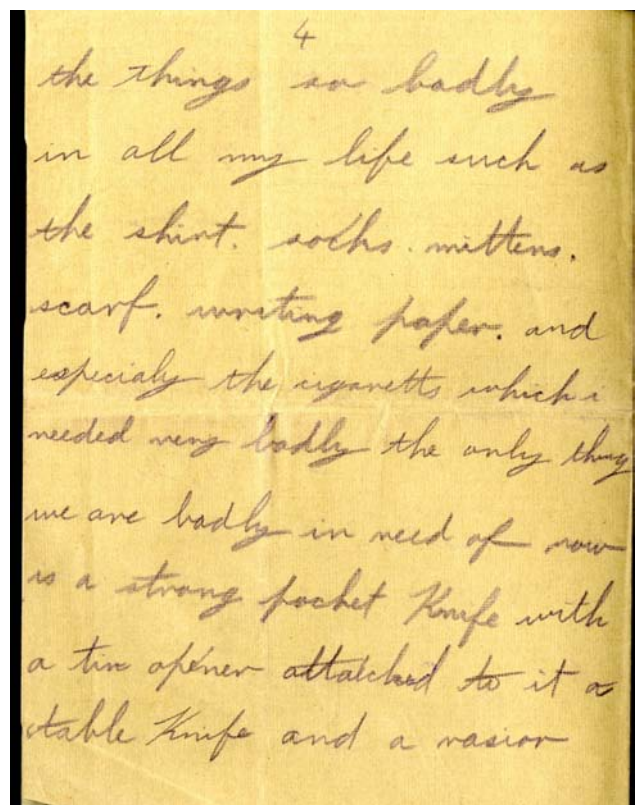 4
the things so badly
in all my life such as
the shirt. socks. mittens.
scarf. writing paper. and
especialy the cigaretts which i
needed very badly the only thing
we are badly in need of now
is a strong pocket Knife with
a tin opener attatched to it a
table Knife and a rasior